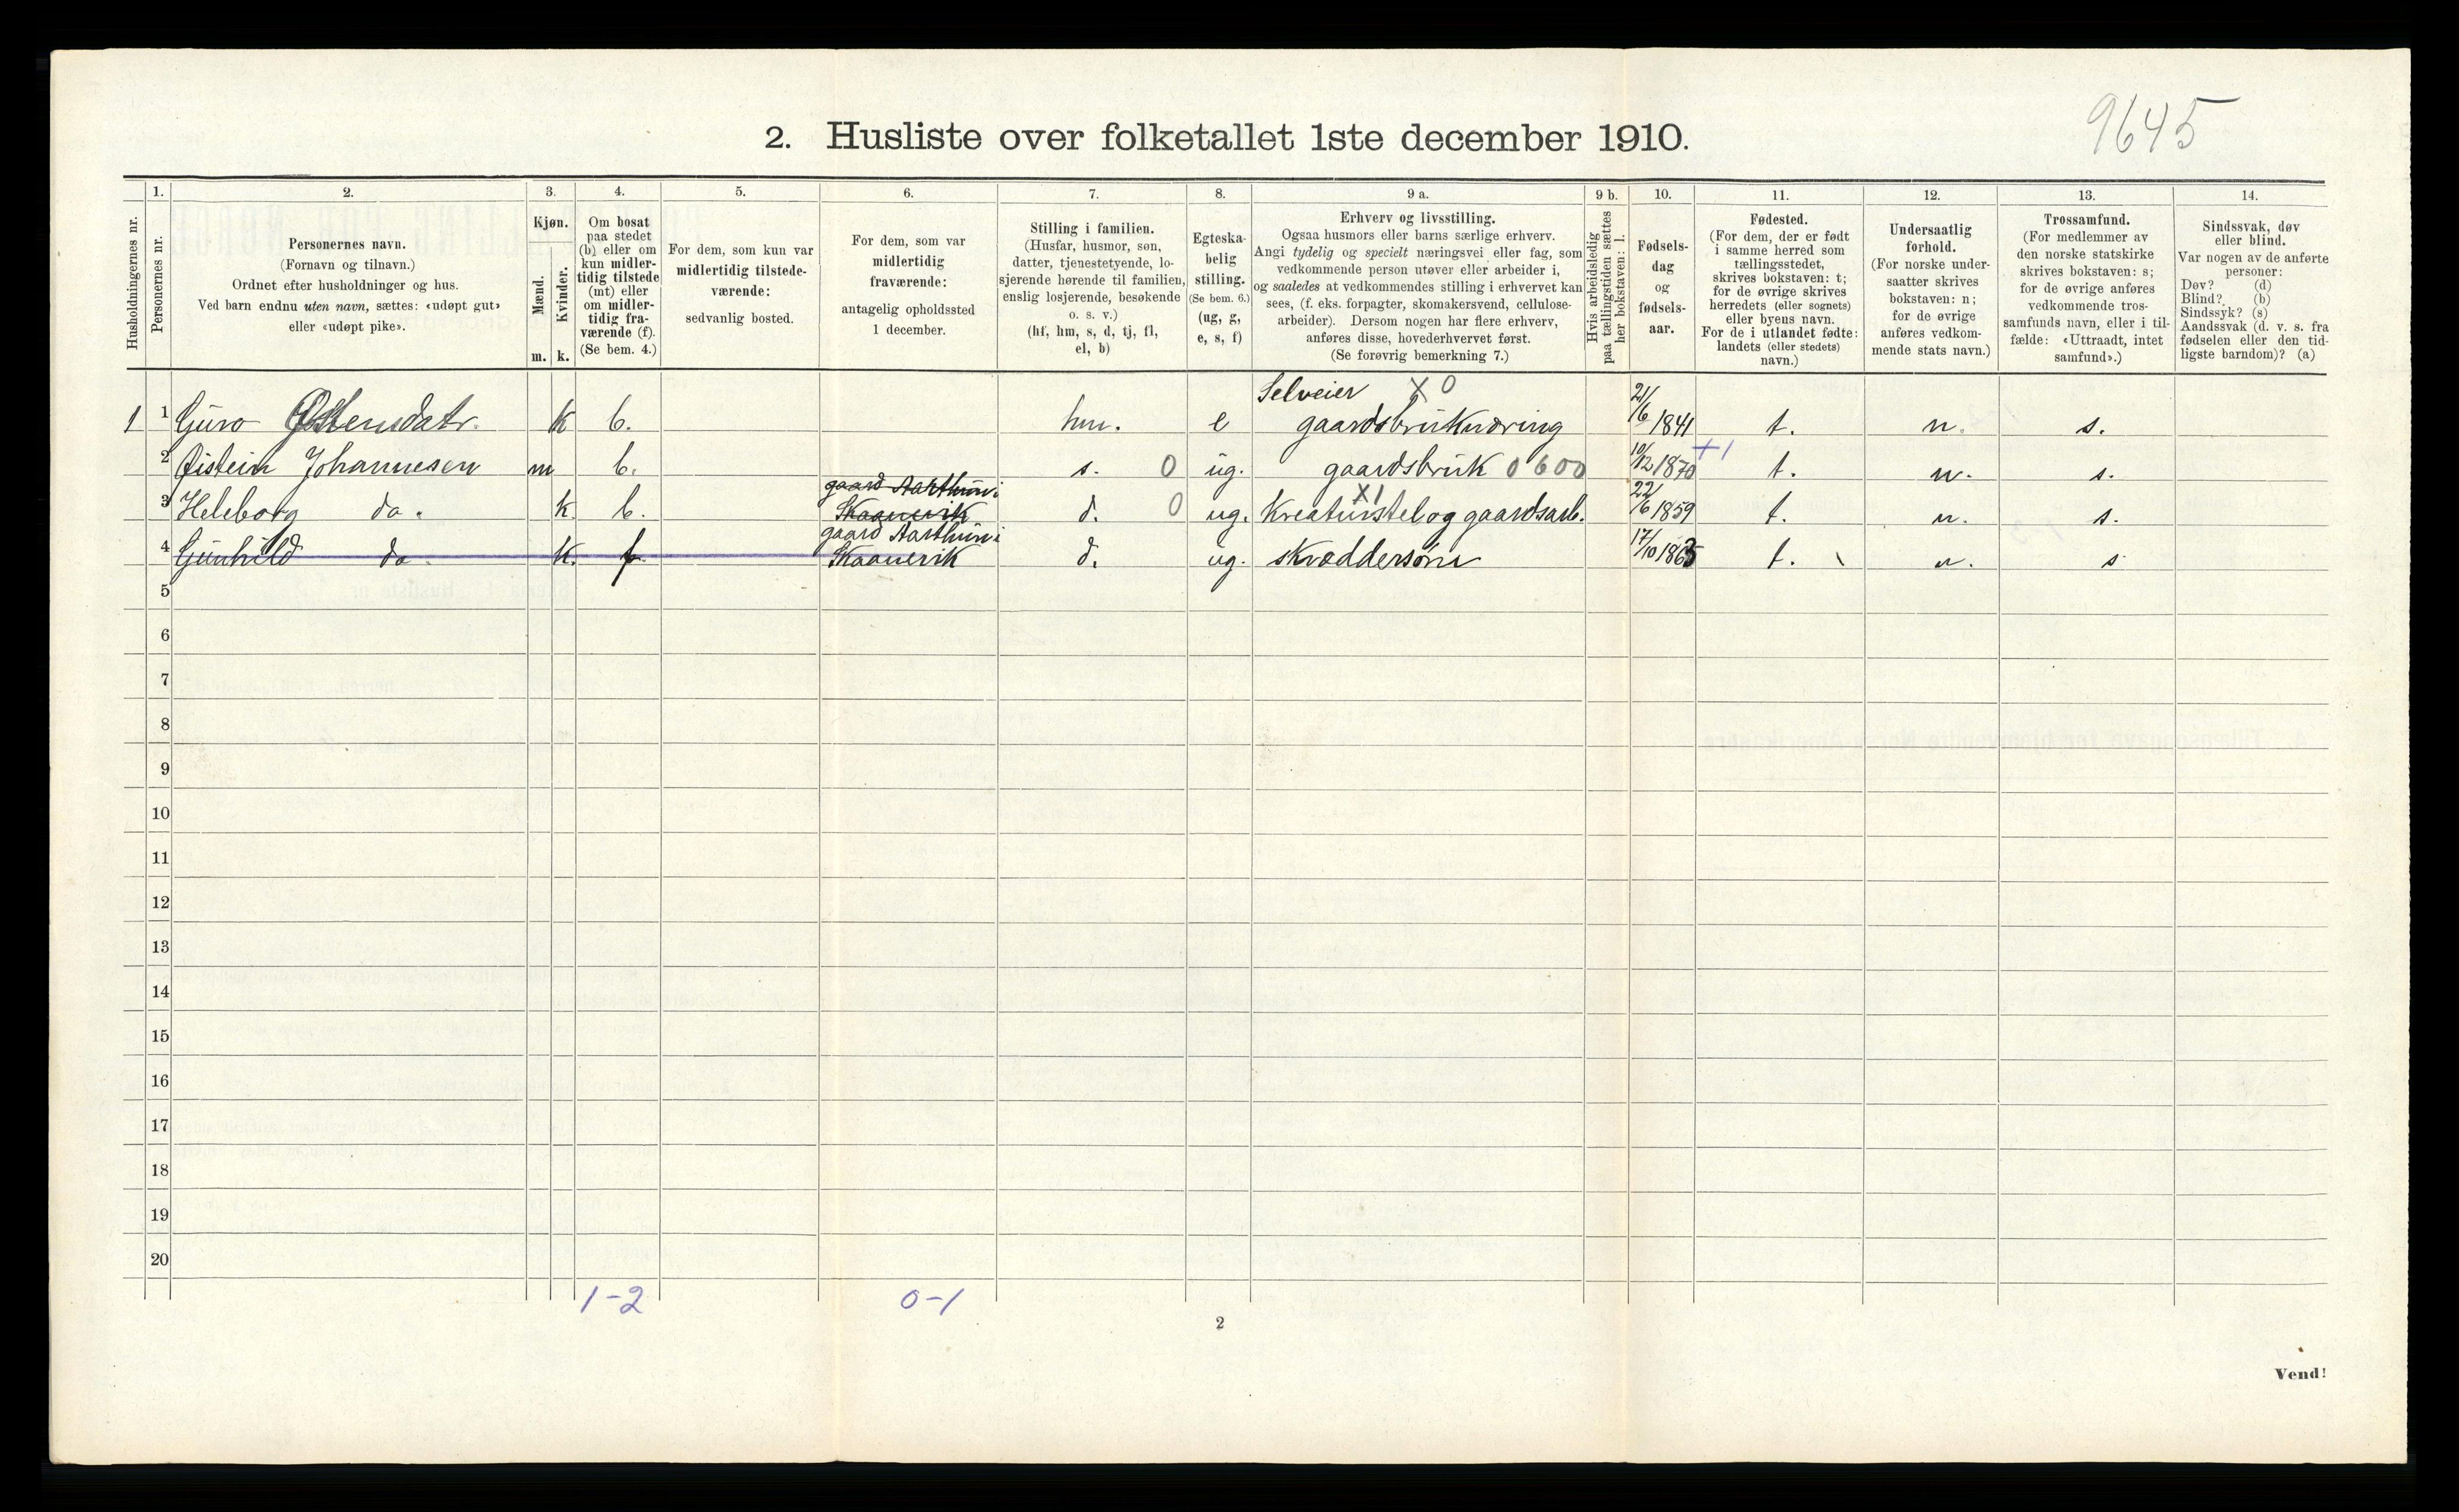 9645
2. Husliste over folketallet 1ste december 1910.
Husholdningernes nr.
1.
Personernes nr.
2.
Personernes navn.
(Fornavn og tilnavn.)
Ordnet efter husholdninger og hus.
Ved barn endnu uten navn, sættes: «udøpt gut»
eller «udøpt pike».
3.
Kjøn.
Mænd.
Kvinder.
m. k.
4.
Om bosat
paa stedet
(b) eller om
kun midler-
tidig tilstede
(mt) eller
om midler-
tidig fra-
værende (f).
(Se bem. 4.)
5.
For dem, som kun var
midlertidig tilstede-
værende:
sedvanlig bosted.
6.
For dem, som var
midlertidig
fraværende:
antagelig opholdssted
1 december.
7.
Stilling i familien.
(Husfar, husmor, søn,
datter, tjenestetyende, lo-
sjerende hørende til familien,
enslig losjerende, besøkende
o. s. v.)
(hf, hm, s, d, tj, fl,
el, b)
8.
Egteska-
belig
stilling.
(Se bem. 6.)
(ug, g,
e, s, f)
9 a.
Erhverv og livsstilling.
Ogsaa husmors eller barns særlige erhverv.
Angi tydelig og specielt næringsvei eller fag, som
vedkommende person utøver eller arbeider i,
og saaledes at vedkommendes stilling i erhvervet kan
sees, (f. eks. forpagter, skomakersvend, cellulose-
arbeider). Dersom nogen har flere erhverv,
anføres disse, hovederhvervet først.
(Se forøvrig bemerkning 7.)
9 b.
Hvis arbeidsledig
paa tællingstiden sættes
her bokstaven: l.
10.
Fødsels-
dag
og
fødsels-
aar.
11.
Fødested.
(For dem, der er født
i samme herred som
tællingsstedet,
skrives bokstaven: t;
for de øvrige skrives
herredets (eller sognets)
eller byens navn.
For de i utlandet fødte:
landets (eller stedets)
navn.)
12.
Undersaatlig
forhold.
(For norske under-
saatter skrives
bokstaven: n;
for de øvrige
anføres vedkom-
mende stats navn.)
13.
Trossamfund.
(For medlemmer av
den norske statskirke
skrives bokstaven: s;
for de øvrige anføres
vedkommende tros-
samfunds navn, eller i til-
fælde: «Uttraadt, intet
samfund».)
14.
Sindssvak, døv
eller blind.
Var nogen av de anførte
personer:
Døv? (d)
Blind? (b)
Sindssyk? (s)
Aandssvak (d. v. s. fra
fødselen eller den tid-
ligste barndom)? (a)
Selveier X 0
1 1 Guro Østensdatr. k b. hm. e gaardsbruknæring 21/6 1841 t. n. s.
2 Øistein Johannesen m b. s. 0 ug. gaardsbruk 0600 10/12 1870 +1 t. n. s.
gaard Aarthun i
3 Heleborg do. k. b. Skaanevik d. 0 ug. X1 Kreaturstel og gaardsarb. 22/6 1859 t. n. s.
gaard Aarthun i
4 Gunhild do. k. f. Skaanevik d. ug. skræddersøm 17/10 1863 t. n. s
5
6
7
8
9
10
11
12
13
14
15
16
17
18
19
20
1-2 0-1
2
Vend!